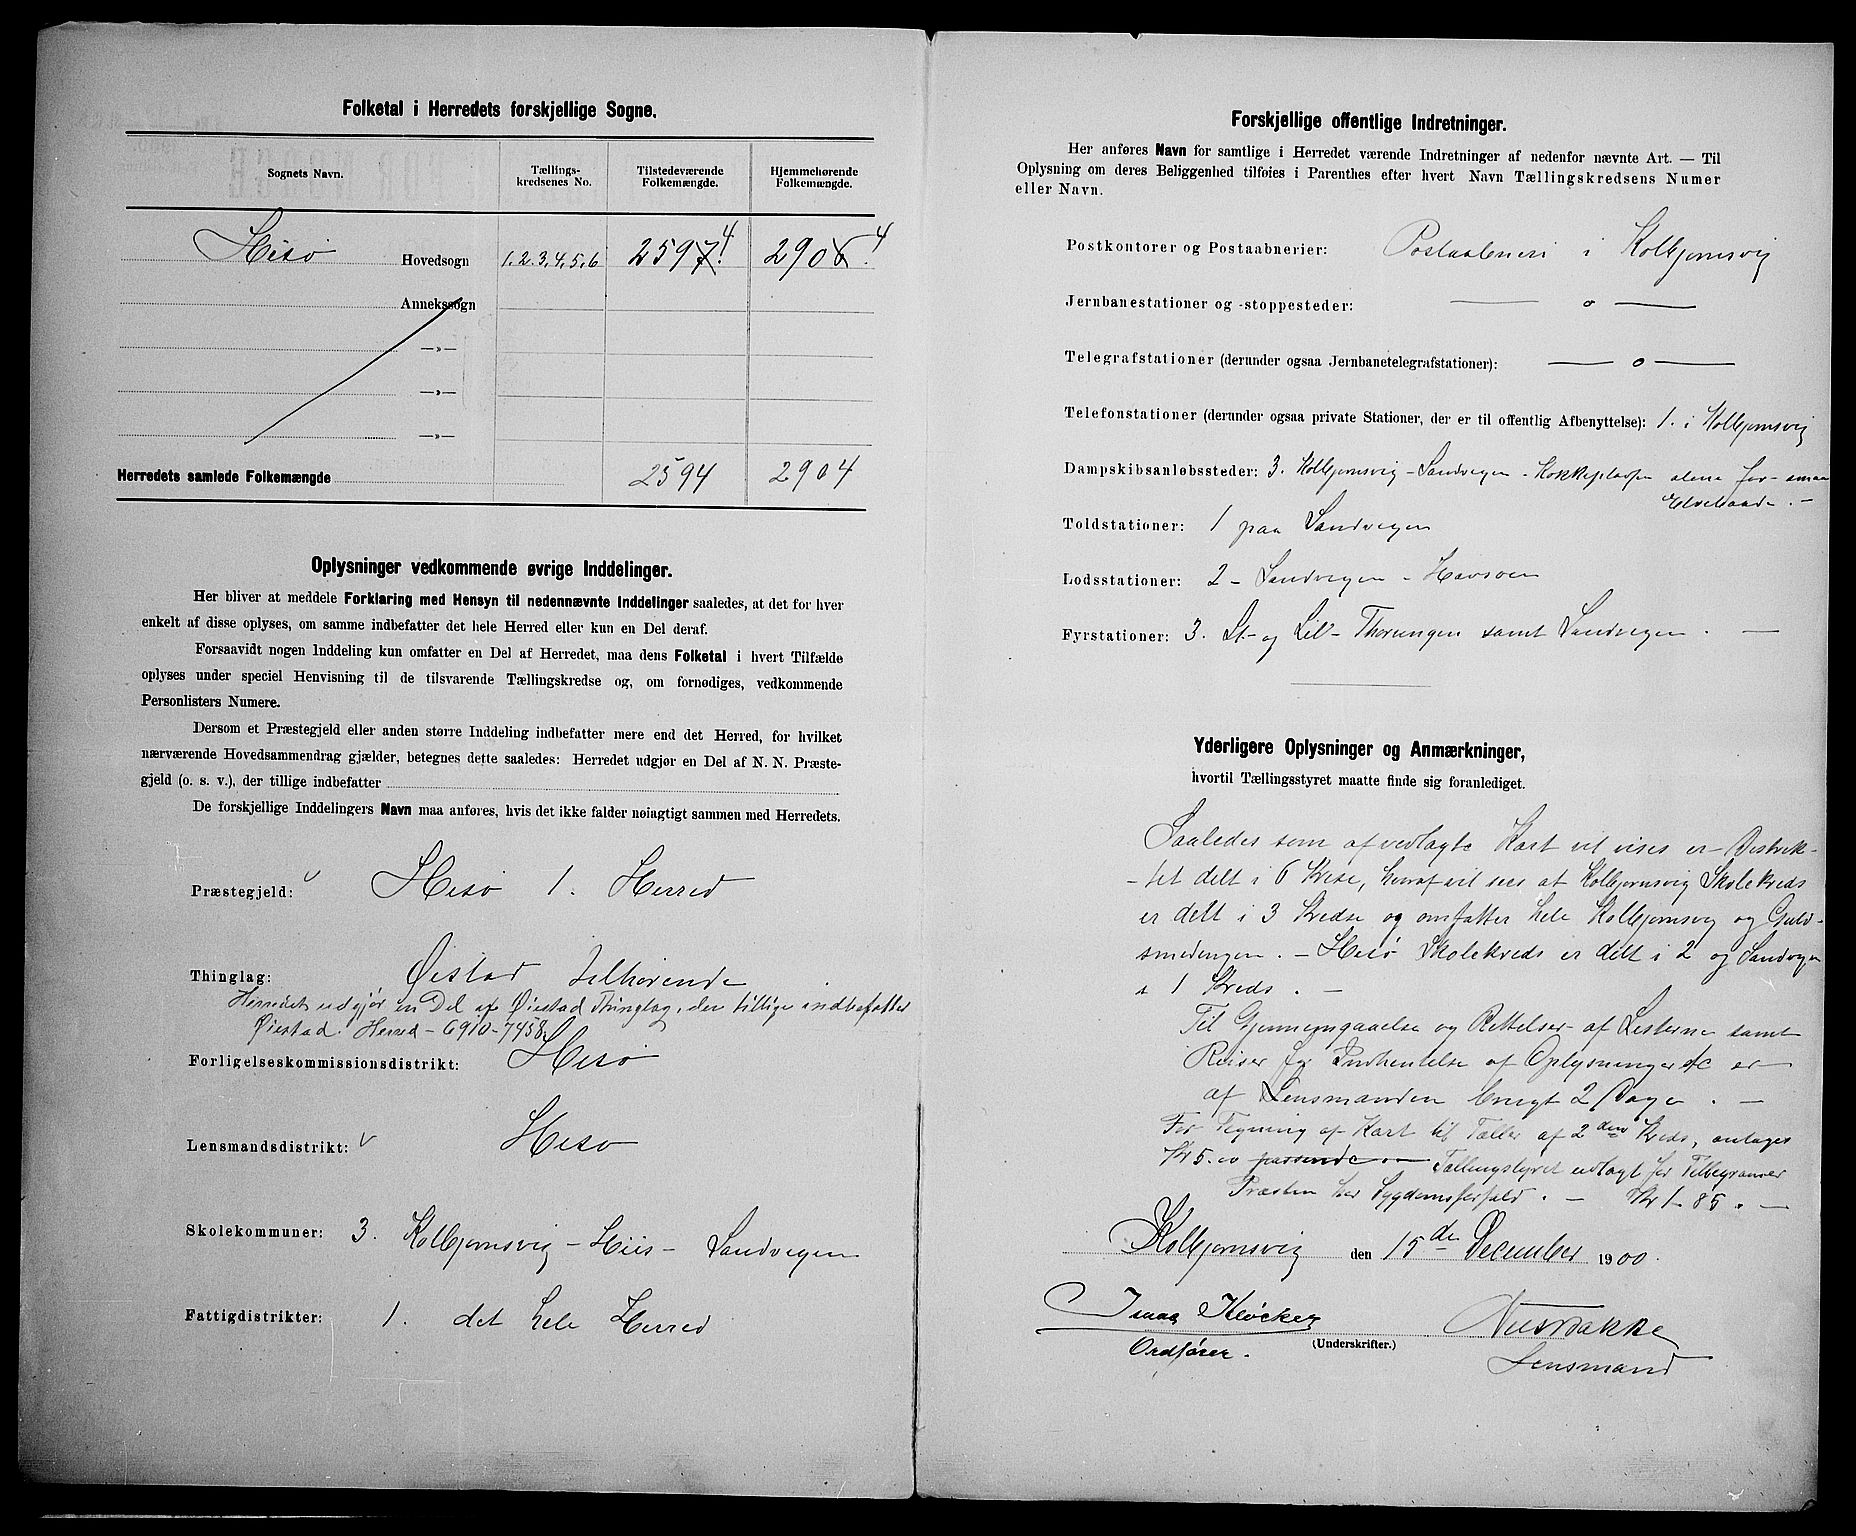 Folketal i Herredets forskjellige Sogne.
Sognets Navn.
Tællings-
kredsenes No.
Tilstedeværende
Folkemængde.
Hjemmehørende
Folkemængde.
Hisø Hovedsogn 1.2.3.4.5.6 2597 4 2906 4
Annekssogn
—»—
—»—
—»—
Herredets samlede Folkemængde 2594 2904
Oplysninger vedkommende øvrige Inddelinger.
Her bliver at meddele Forklaring med Hensyn til nedennævnte Inddelinger saaledes, at det for hver
enkelt af disse oplyses, om samme indbefatter det hele Herred eller kun en Del deraf.
Forsaavidt nogen Inddeling kun omfatter en Del af Herredet, maa dens Folketal i hvert Tilfælde
oplyses under speciel Henvisning til de tilsvarende Tællingskredse og, om fornødiges, vedkommende
Personlisters Numere.
Dersom et Præstegjeld eller anden større Inddeling indbefatter mere end det Herred, for hvilket
nærværende Hovedsammendrag gjælder, betegnes dette saaledes: Herredet udgjør en Del af N. N. Præste-
gjeld (o. s. v.), der tillige indbefatter
De forskjellige Inddelingers Navn maa anføres, hvis det ikke falder nøiagtigt sammen med Herredets.
Præstegjeld: Hisø 1. Herred
Thinglag: Øistad tilhørende
Herredet udgjør en Del af Øiestad Thinglag, der tillige indbefatter
Øiestad Herred - 6910-7458
Forligelseskommissionsdistrikt: Hisø
Lensmandsdistrikt: Hisø
Skolekommuner: 3. Kolbjørnsvig - Hiis - Sandvigen
Fattigdistrikter: 1. det hele Herred
Forskjellige offentlige Indretninger.
Her anføres Navn for samtlige i Herredet værende Indretninger af nedenfor nævnte Art. — Til
Oplysning om deres Beliggenhed tilføies i Parenthes efter hvert Navn Tællingskredsens Numer
eller Navn.
Postkontorer og Postaabnerier: Postaabneri i Kolbjørnsvig
Jernbanestationer og -stoppesteder: — o —
Telegrafstationer (derunder ogsaa Jernbanetelegrafstationer): — o —
Telefonstationer (derunder ogsaa private Stationer, der er til offentlig Afbenyttelse): 1. i Kolbjørnsvig
Dampskibsanløbssteder: 3. Kolbjørnsvig - Sandvigen - Kokkeplassen alene for smaa
Elvebaade. —
Toldstationer: 1 paa Sandvigen
Lodsstationer: 2 - Sandvigen - Havsøen
Fyrstationer: 3. St- og Lil- Thorungen samt Sandvigen. —
Yderligere Oplysninger og Anmærkninger,
hvortil Tællingsstyret maatte finde sig foranlediget.
Saaledes som af vedlagte Kart vil vises er Distrik-
-tet delt i 6 Krese, hvoraf vil sees at Kolbjørnsvig Skolekreds
er delt i 3 Kredse og omfatter hele Kolbjørnsvig og Guld-
smedengen. - Hisø Skolekreds er delt i 2 og Sandvigen
i 1 Kreds. —
Til Gjennemgaaelse og Rettelser af Listerne samt
Reiser for Indhentelse af Oplysninger &c er
af Lensmanden brugt 2 Dage. —
For Tegning af Kart til Tæller af 2den Kreds, antages
Kr 5. passende Tællingstyret udlagt for
Præsten har Sygdomsforfald. — Kr 1-85. —
Kolbjørnsvig den 15de December 1900.
Isaac Kløcker
Ordfører.
(Underskrifter.)
Lensmand